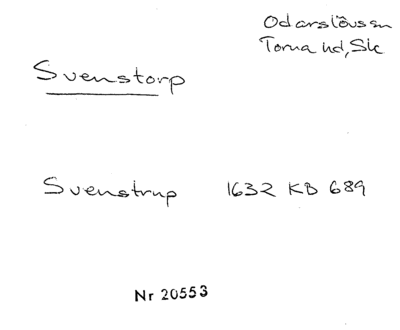 Odarslövs sn
Torna hd, Sk
Svenstorp
Svenstrup 1632 KB 689
Nr 20553